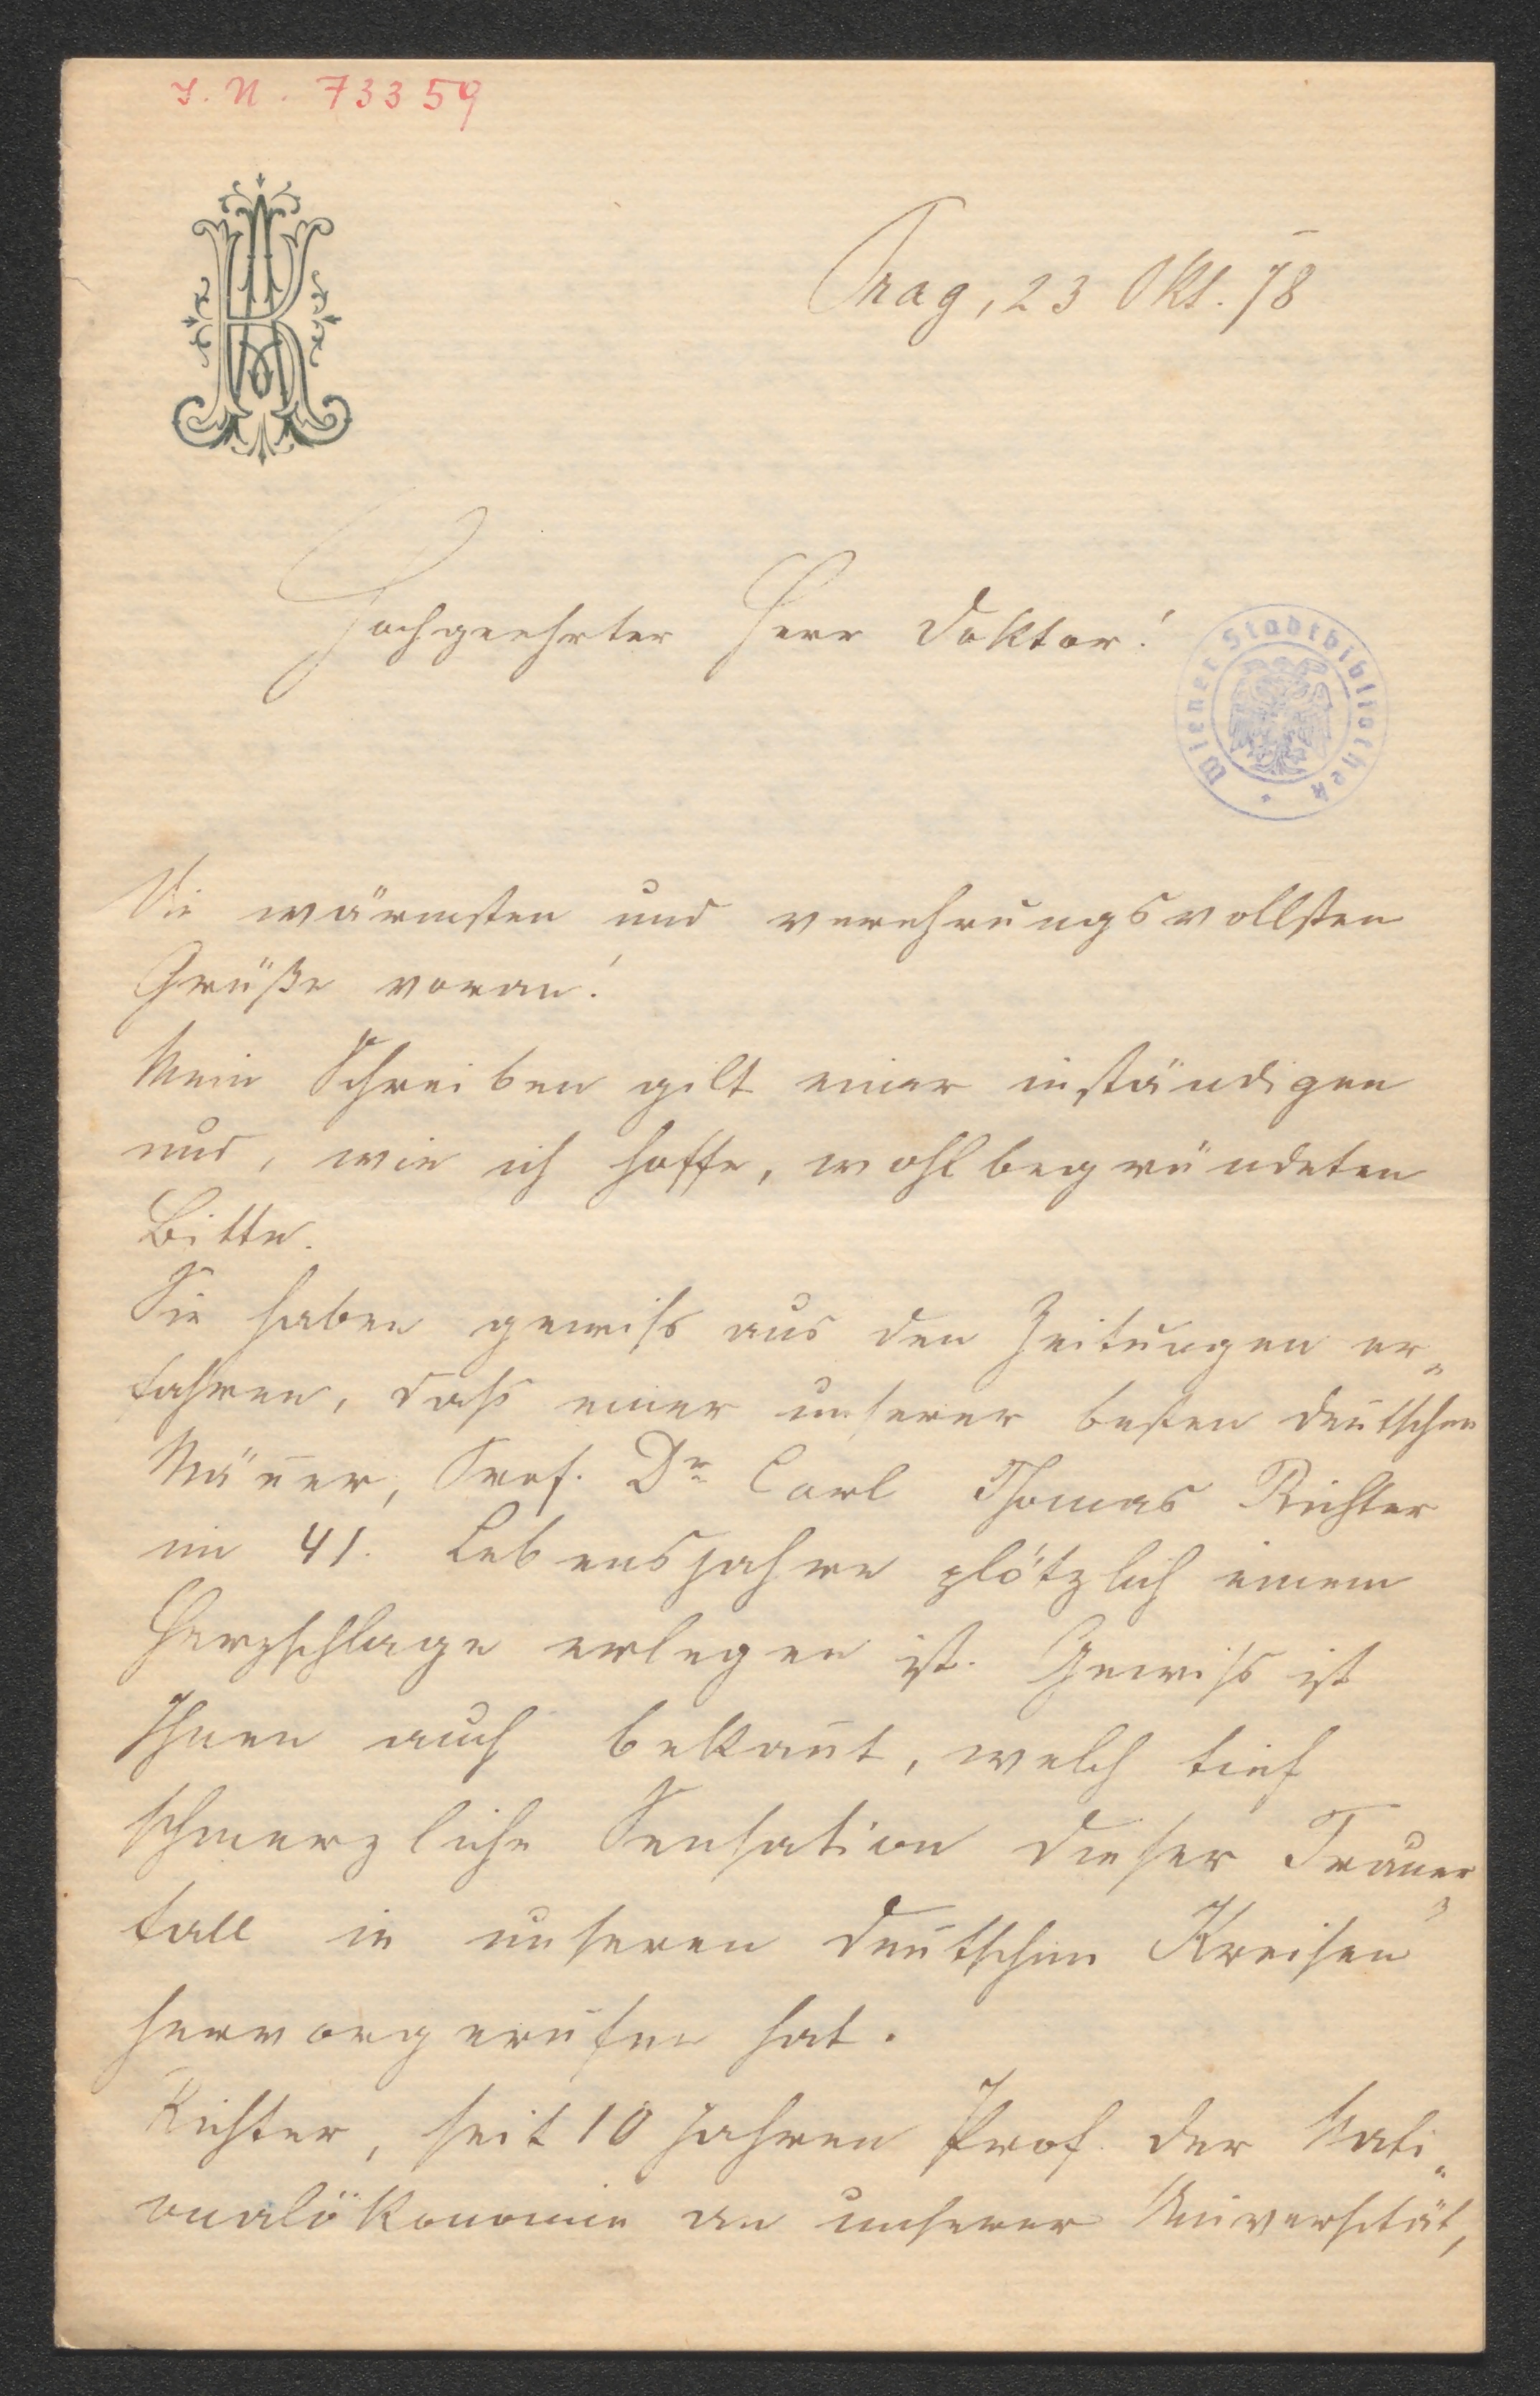 I. N. 73359
Prag, 23 Okt. 78
Hochgeehrter Herr Doktor!
Wiener Stadtbibliothek
Die wärmsten und verehrungsvollsten
Grüße voran!
Mein Schreiben gilt einer inständigen
und, wie ich hoffe, wohlbegründeten
Bitte.
Sie haben gewiss aus den Zeitungen er-
fahren, dass einer unserer besten deutschen
Mäñer, Prof. Dr Carl Thomas Richter
im 41. Lebensjahre plötzlich einem
Herzschlage erlegen ist. Gewiss ist
Ihnen auch bekañt, welch tief
schmerzliche Sensation dieser Trauer-
fall in unseren deutschen Kreisen
hervorgerufen hat.
Richter, seit 10 Jahren Prof. der Nati-
onalökonomie an unserer Universität,